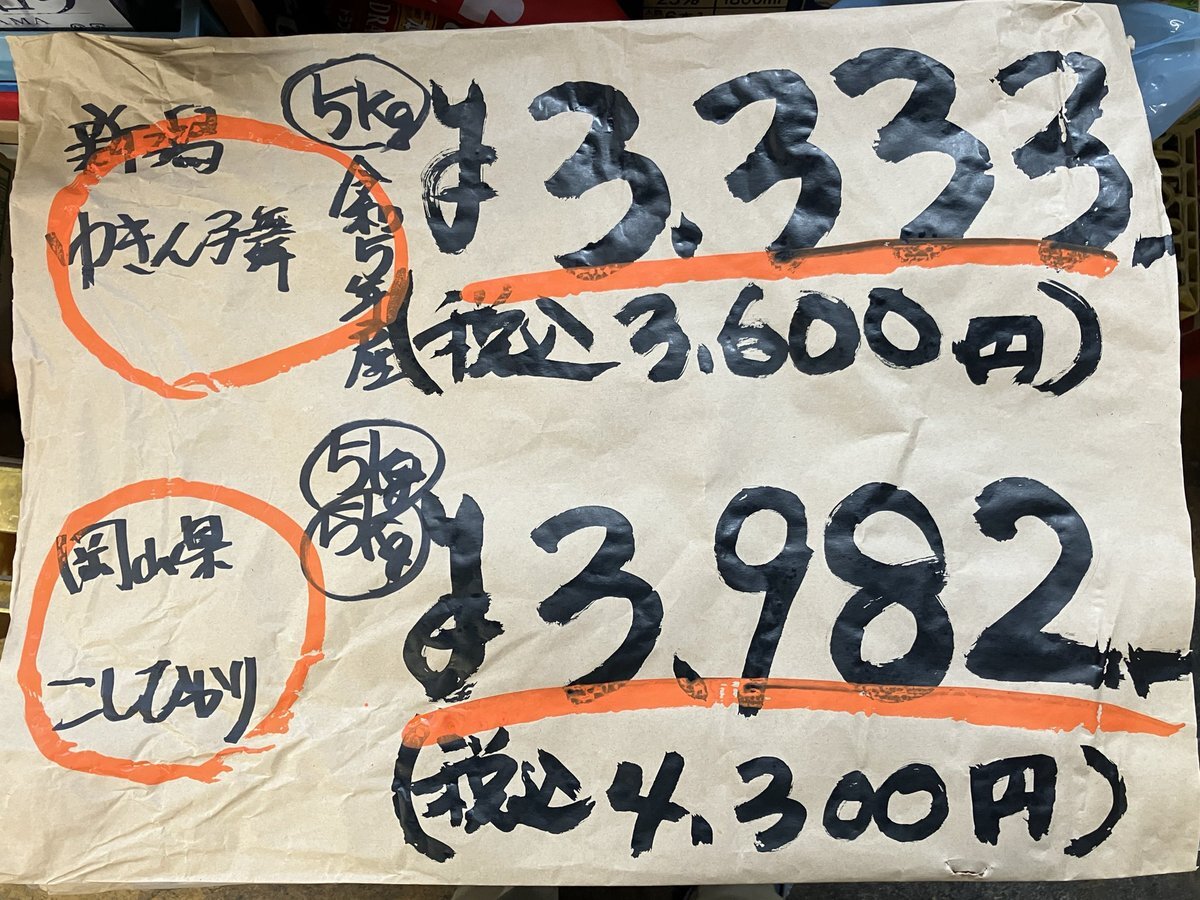 新潟
5kg
ゆきん子舞
令和5年産
¥3.333.-
(税込3.600円)
5kg
5kg
岡山県
こしひかり
¥3.982.-
(税込4.300円)